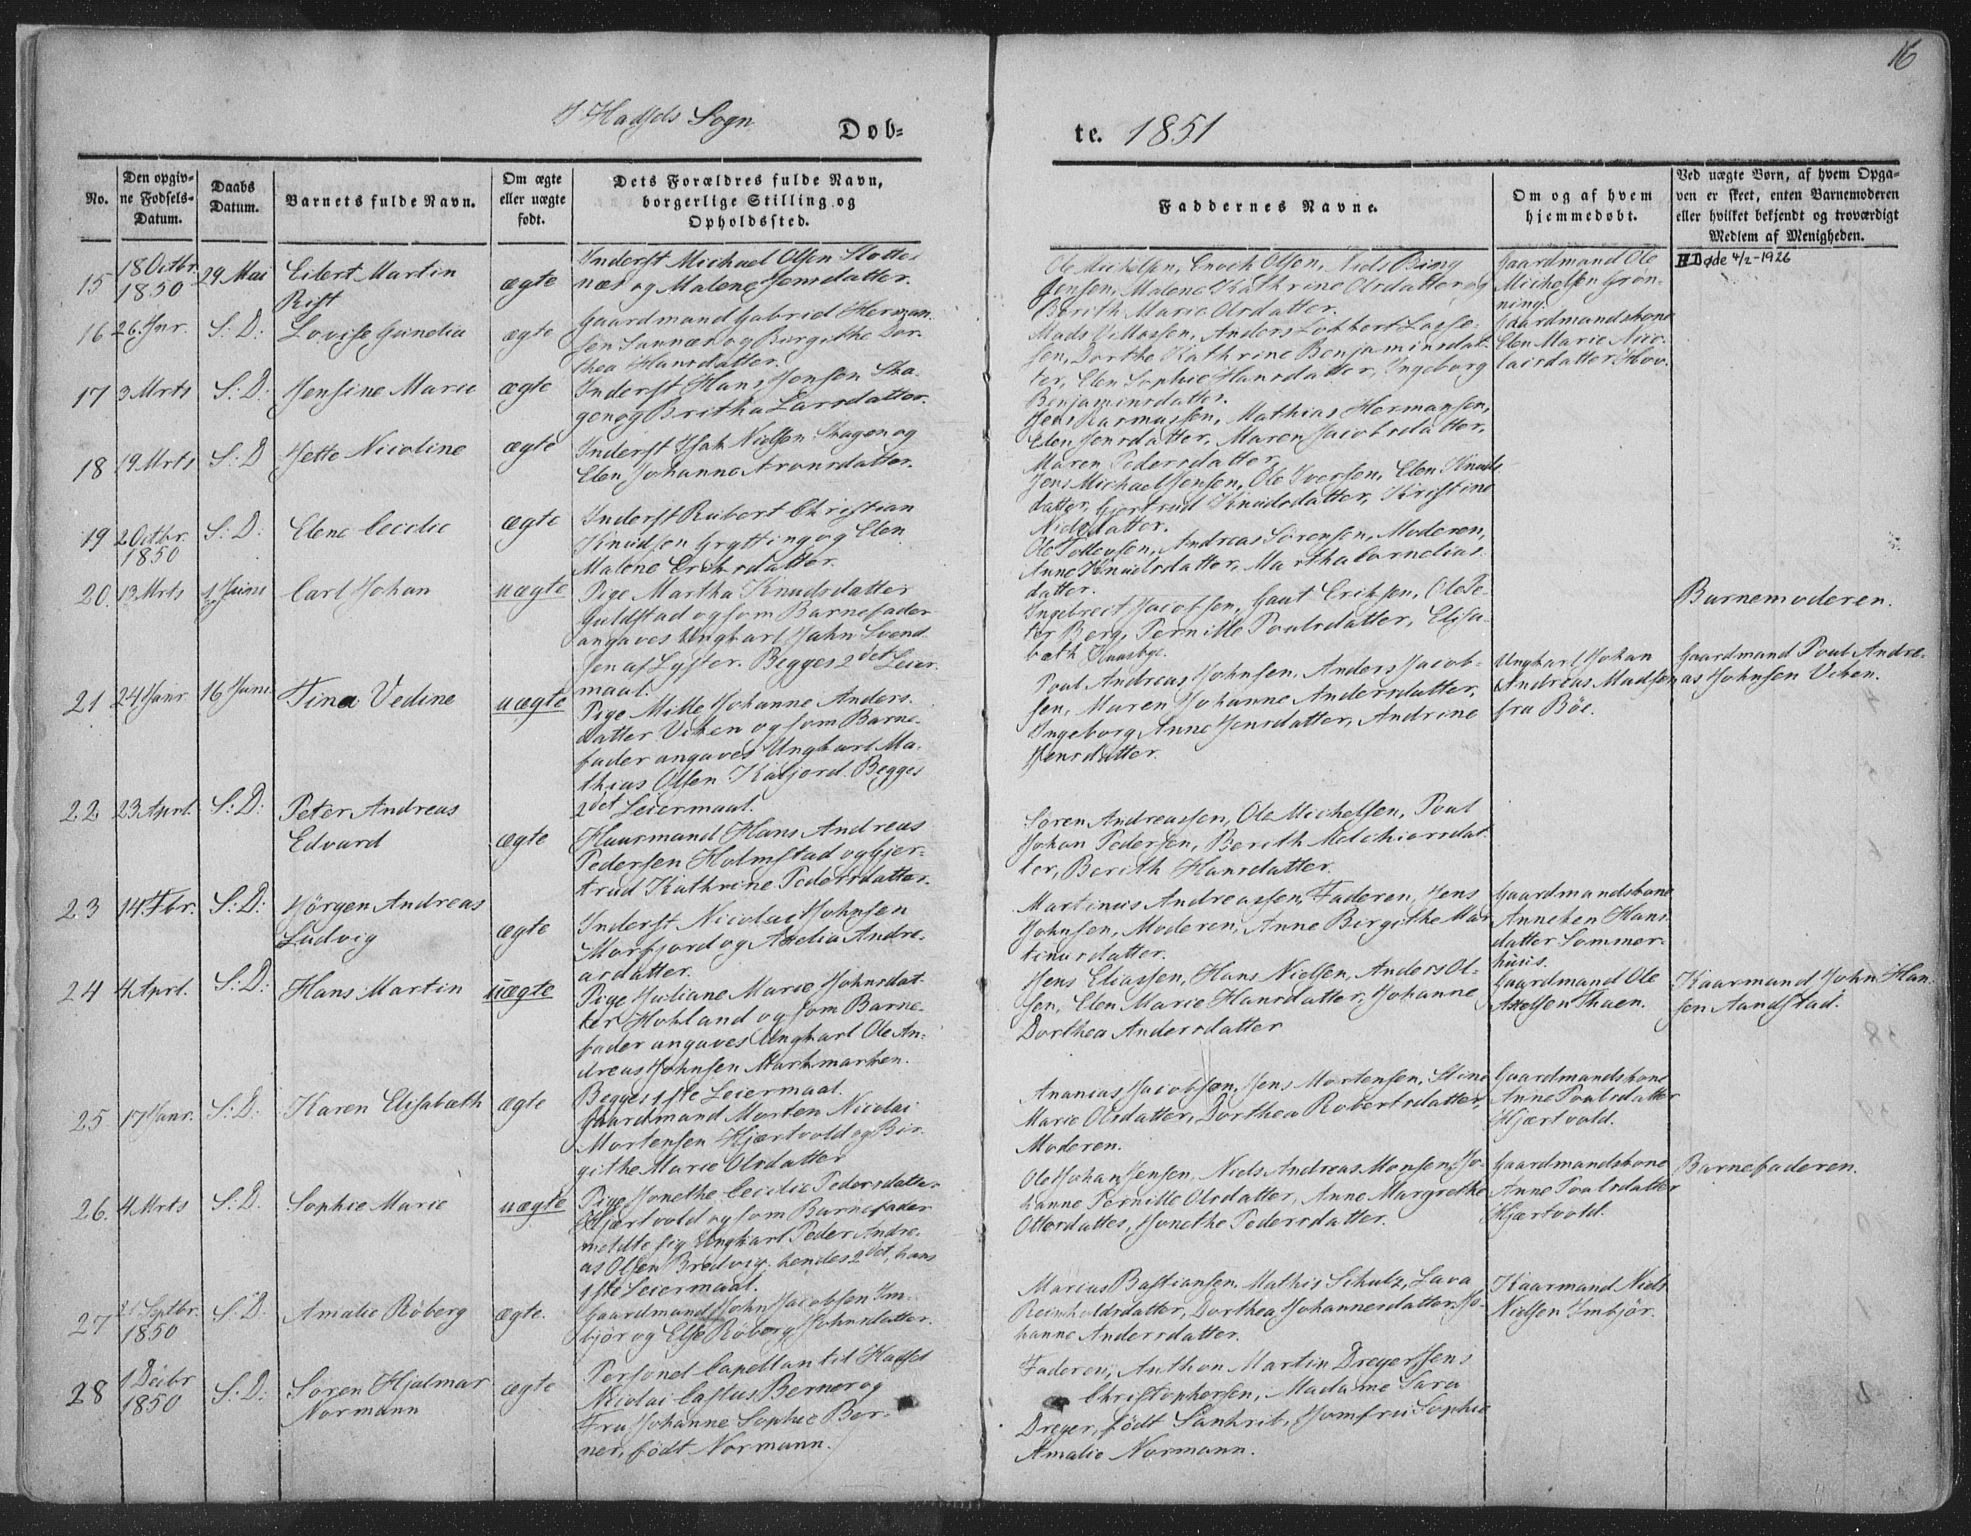 16
I Hadsels Sogn
Døb-
te. 1851
No.
Den opgiv-
ne Fødsels-
Datum.
Daabs
Datum.
Barnets fulde Navn.
Om ægte
eller uægte
født.
Dets Forældres fulde Navn,
borgerlige Stilling og
Opholdssted.
Faddernes Navne.
Om og af hvem
hjemmedøbt.
Ved uægte Børn, af hvem Opga-
ven er skeet, enten Barnemoderen
eller hvilket bekjendt og troværdigt
Medlem af Menigheden.
15
18 Octbr.
1850
29 Mai
Eilert Martin
Rist
ægte
Inderst Michael Olsen Slotte-
næs og Malene Jensdatter.
Ole Michelsen, Enoch Olsen, Niels Bing
Jensen, Malene Kathrine Olsdatter og
Berith Marie Olsdatter.
Gaardmand Ole
Michelsen Grøn-
ning.
Døde 4/2-1926
16
26 Jnr.
S: D:
Lovise Gunelia
ægte
Gaardmand Gabriel Herman-
sen Sannæs og Birgithe Dor-
thea Hansdatter.
Mads Villassen, Anders Lobbert Lasse-
sen, Dorthe Kathrine Benjaminsdat-
ter, Elen Sophie Hansdatter, Ingeborg
Benjaminsdatter.
Gaardmandskone
Elen Marie Nico-
laisdatter Hov.
17
3 Mrts
S: D:
Jensine Marie
ægte
Inderst Hans Jensen Ska-
gen og Britha Larsdatter.
Jens Rasmussen, Mathias Hermansen,
Elen Jensdatter, Maren Jacobsdatter,
Maren Pedersdatter
18
19 Mrts
S: D
Jette Nicoline
ægte
Inderst Isak Nielsen Skagen og
Elen Johanna Aronsdatter.
Jens Michael Jensen, Ole Iversen, Elen Knuds-
datter, Gjertrud Knudsdatter, Kristine
Nielsdatter.
19
2 Octbr.
1850
S: D:
Elene Cecilie
ægte
Inderst Rubert Christian
Knudsen Grytting og Elen
Malene Eriksdatter.
Ole Tollevsen, Andreas Sörensen, Moderen,
Anne Knudsdatter, Martha Cornelias-
datter.
20.
13 Mrts
1 Juni
Carl Johan
uægte
Pige Martha Knudsdatter
Guldstad og som Barnefader
angaves Ungkarl John Svend-
sen af Lyster. Begges 2det Leier-
maal.
Ingebret Jacobsen, Gaut Eriksen, Ole Pe-
ter Berg, Pernille Poulsdatter, Elisa-
beth
Barnemoderen.
21
24 Janr.
16 Juni
Tina Vedine
uægte
Pige Mille Johanne Anders-
datter Viken og som Barne-
fader angaves Ungkarl Ma-
thias Olsen Kafjord. Begges
2det Leiermaal.
Poul Andreas Johnsen, Anders Jacob-
sen, Maren Johanne Andersdatter,
Ingeborg Anne Jensdatter, Andrine
Jensdatter.
Ungkarl Johan
Andreas Madsen
fra Böe.
Gaardmand Poul Andre-
as Johnsen Viken.
22
23 Aprl.
S: D:
Peter Andreas
Edvard
ægte
Huusmand Hans Andreas
Pedersen Holmstad og Gjer-
trud Kathrine Pedersdatter.
Sören Andreassen, Ole Michelsen, Poul
Johan Pedersen, Berith Melchiorsdat-
ter, Berith Hansdatter.
23
14 Fbr.
S: D:
Jörgen Andreas
Ludvig
ægte
Inderst Nicolai Johnsen
Morfjord og Axelia Andre-
asdatter.
Martinus Andreassen, Faderen, Jens
Johnsen, Moderen, Anne Birgithe Mar-
tinusdatter.
Gaardmandskone
Anneken Hans-
datter Sommer-
huus.
24
4 Aprl.
S: D:
Hans Martin
uægte
Pige Juliane Marie Johnsdat-
ter Hokland og som Barne-
fader angaves Ungkarl Ole An-
dreas Johnsen Markmarken.
Begges 1ste Leiermaal.
Jens Eliassen, Hans Nielsen, Anders Ol-
sen, Elen Marie Hansdatter, Johanne
Dorthea Andersdatter
Gaardmand Ole
Axelsen Thaen.
Kaarmand John Han-
sen Aandstad.
25
17 Janr.
S: D:
Karen Elisabæth
ægte
Gaardmand Morten Nicolai
Mortensen Hjærtvold og Bir-
githe Marie Olsdatter
Ananias Jacobsen, Jens Mortensen, Stine
Marie Olsdatter, Dorthea Robertsdatter,
Moderen.
Gaardmandskone
Anne Poulsdatter
Hjærtvold.
26.
4 Mrts
S: D.
Sophie Marie
uægte
Pige Jonethe Cecilie Pedersdatter
Hjærtvold og som Barnefader
meldte sig Ungkarl Peder Andre-
as Olsen Bredvig. hendes 2det, hans
1ste Leiermaal.
Ole Johan Jensen, Niels Andreas Monsen, Jo-
hanne Pernille Olsdatter, Anne Margrethe
Ottersdatter, Jonethe Pedersdatter.
Gaardmandskone
Anne Poulsdatter
Hjærtvold.
Barnefaderen.
27
Septbr.
1850
S: D.
Amalie Röberg
ægte.
Gaardmand John Jacobsen Im-
björ og Else Röberg Johnsdatter.
Marius Bastiansen, Mathis Schulz, Lava
Reinholdsdatter, Dorthea Johannesdatter, Jo-
hanne Andersdatter.
Kaarmand Niels
Nielsen Imbjör.
28
1 Decbr
1850
S: D:
Sören Hjalmar
Normann
ægte
Personel Capellan til Hadsel
Nicolai Castus Berner og
Fru Johanne Sophie Ber-
ner, født Normann.
Faderen, Anthon Martin Dreyer, Jens
Christophersen, Madame Sara
Dreyer, født Lankrit, Jomfru Sophie
Amalie Normann.